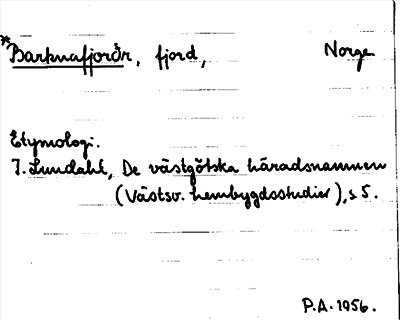 *Barknafjorðr, fjord, Norge
Etymologi.
I. Lundahl, De västgötska häradsnamnen
(Västsv. hembygdsstudier), s 5.
P.A. 1956.